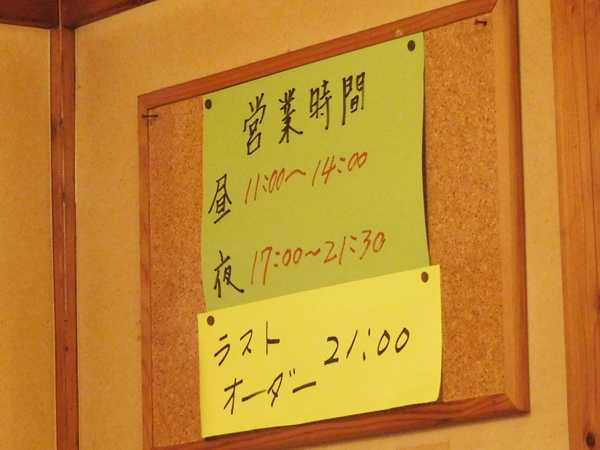 営業時間
昼 11:00～14:00
夜 17:00～21:30
ラスト
オーダー 21:00